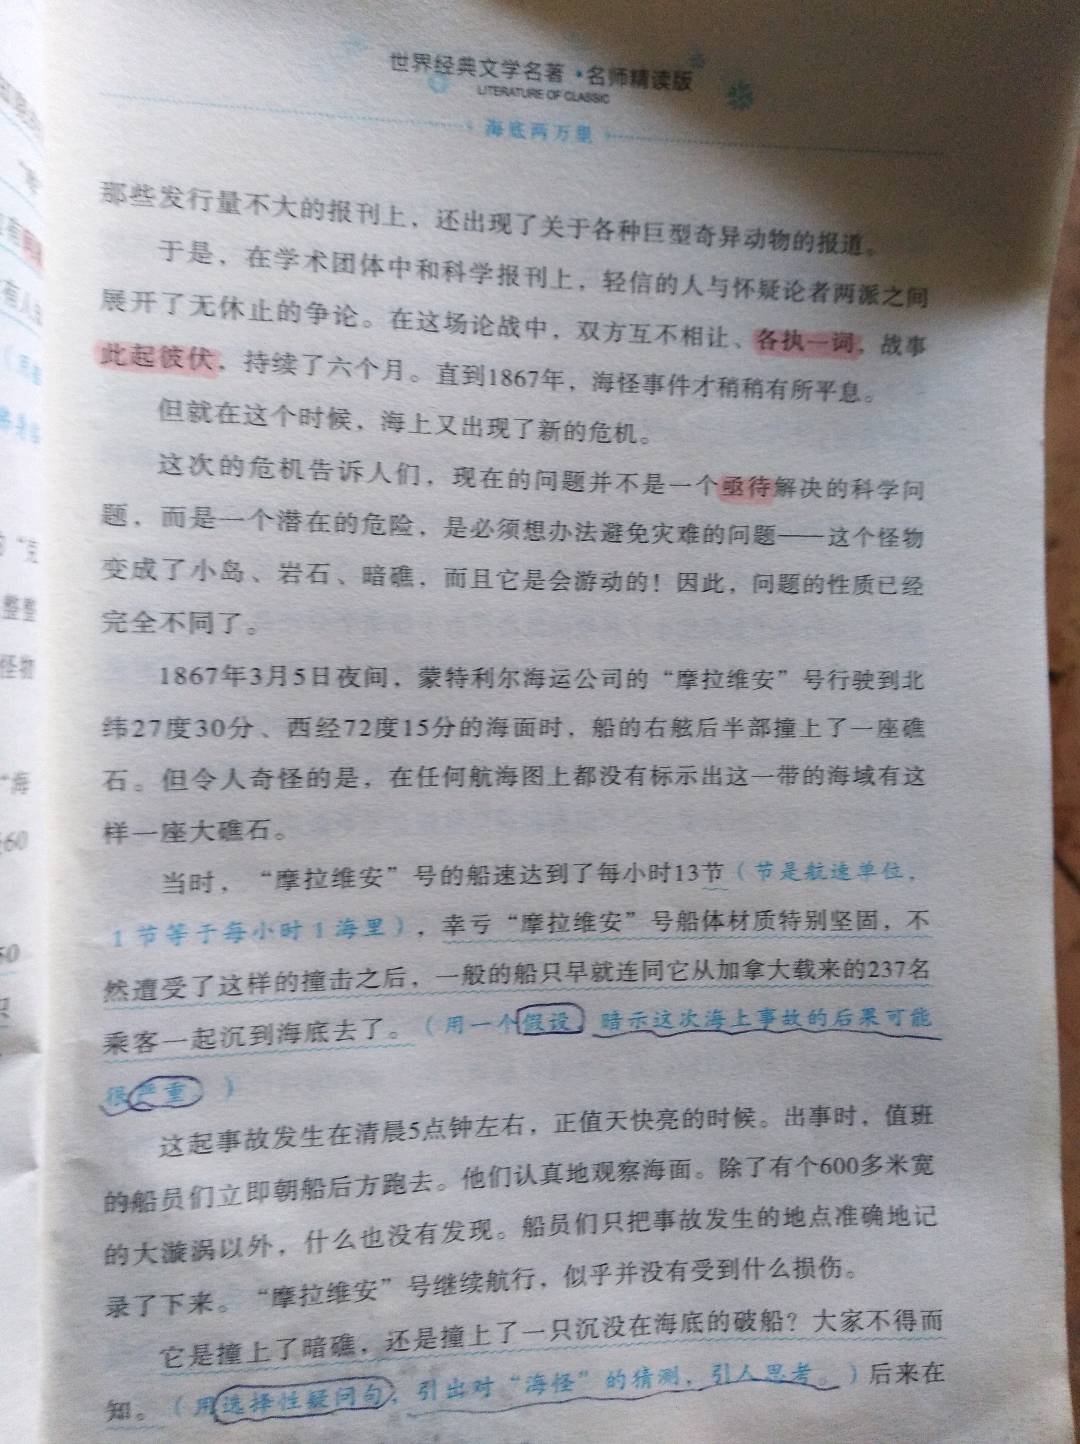 世界经典文学名著·名师精读版
LITERATURE OF CLASSIC
海底两万里
那些发行量不大的报刊上，还出现了关于各种巨型奇异动物的报道。
于是，在学术团体中和科学报刊上，轻信的人与怀疑论者两派之间
展开了无休止的争论。在这场论战中，双方互不相让、各执一词，战事
此起彼伏，持续了六个月。直到1867年，海怪事件才稍稍有所平息。
但就在这个时候，海上又出现了新的危机。
这次的危机告诉人们，现在的问题并不是一个亟待解决的科学问
题，而是一个潜在的危险，是必须想办法避免灾难的问题——这个怪物
变成了小岛、岩石、暗礁，而且它是会游动的！因此，问题的性质已经
完全不同了。
1867年3月5日夜间，蒙特利尔海运公司的“摩拉维安”号行驶到北
纬27度30分、西经72度15分的海面时，船的右舷后半部撞上了一座礁
石。但令人奇怪的是，在任何航海图上都没有标示出这一带的海域有这
样一座大礁石。
当时，“摩拉维安”号的船速达到了每小时13节（节是航速单位，
1节等于每小时1海里），幸亏“摩拉维安”号船体材质特别坚固，不
然遭受了这样的撞击之后，一般的船只早就连同它从加拿大载来的237名
乘客一起沉到海底去了。（用一个假设，暗示这次海上事故的后果可能
很严重。）
这起事故发生在清晨5点钟左右，正值天快亮的时候。出事时，值班
的船员们立即朝船后方跑去。他们认真地观察海面。除了有个600多米宽
的大漩涡以外，什么也没有发现。船员们只把事故发生的地点准确地记
录了下来。“摩拉维安”号继续航行，似乎并没有受到什么损伤。
它是撞上了暗礁，还是撞上了一只沉没在海底的破船？大家不得而
知。（用选择性疑问句，引出对“海怪”的猜测，引人思考。）后来在
“克
整整
怪物
“海
60
50